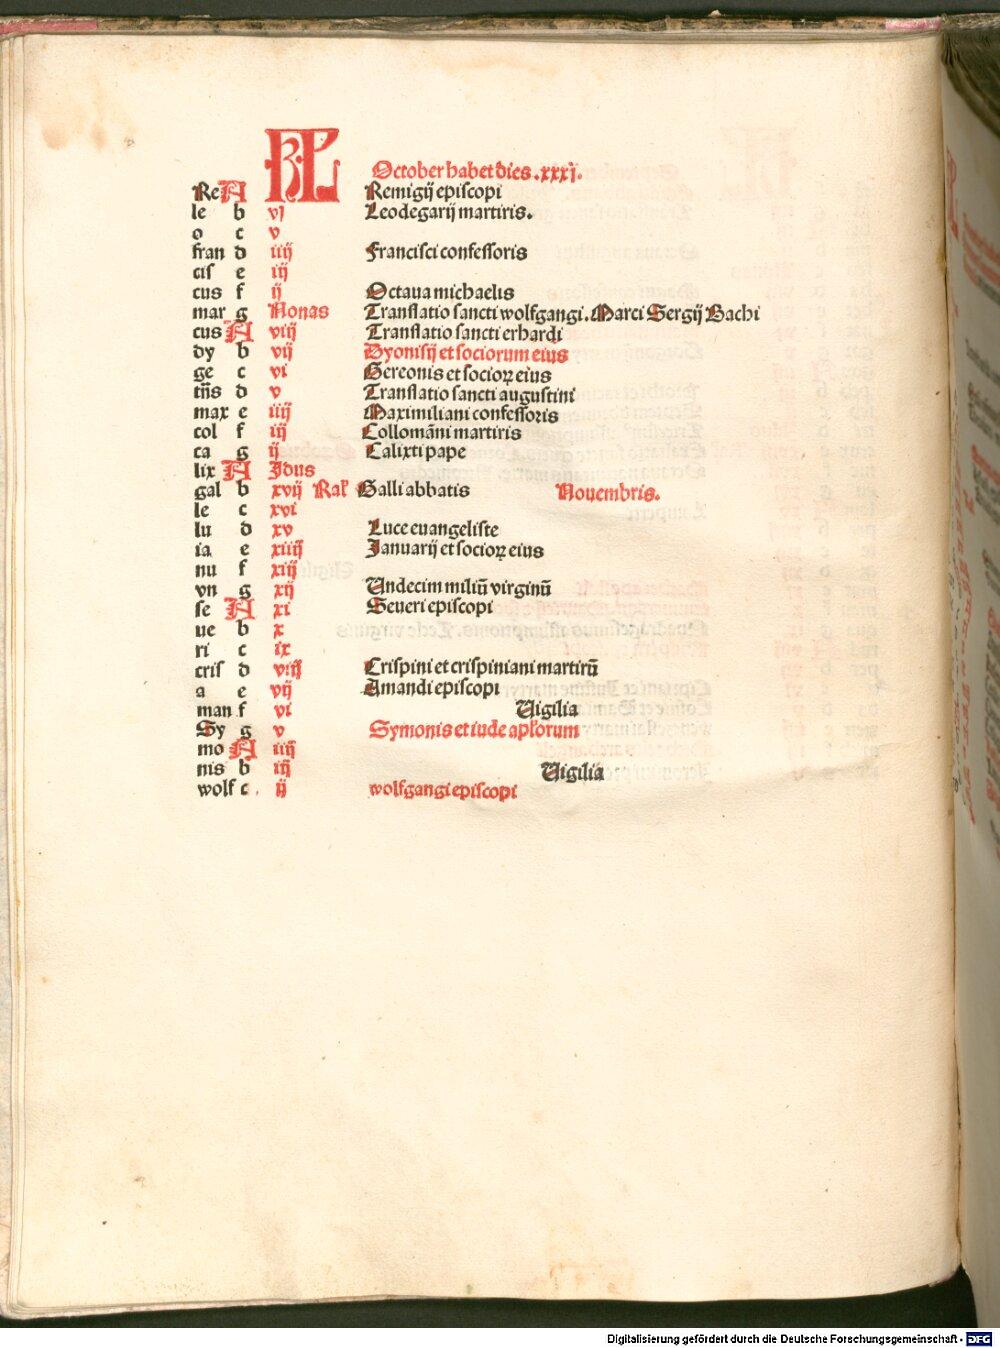 KL October habet dies .xxxj.
Re A Remigij episcopi
le b vj Leodegarij martiris.
o c v
fran d iiij Francisci confessoris
cis e iij
cus f ij Octaua michaelis
mar g Nonas Translatio sancti wolfgangi. Marci Sergij Bachi
cus A viij Translatio sancti erhardi
dy b vij Dyonisij et sociorum eius
ge c vi Gereonis et socioꝝ eius
tñs d v Translatio sancti augustini
max e iiij Maximiliani confessoris
col f iij Collomāni martiris
ca g ij Calixti pape
lix A Idus
gal b xvij Kal Galli abbatis Nouembris.
le c xvi
lu d xv Luce euangeliste
ia e xiiij Januarij et socioꝝ eius
nu f xiij
vn g xij Undecim miliū virginū
se A xi Seueri episcopi
ue b x
ri c ix
cris d viij Crispini et crispiniani martirū
a e vij Amandi episcopi
man f vi Uigilia
Sy g v Symonis et iude apl'orum
mo A iiij
nis b iij Uigilia
wolf c . ij wolfgangi episcopi
Digitalisierung gefördert durch die Deutsche Forschungsgemeinschaft - DFG